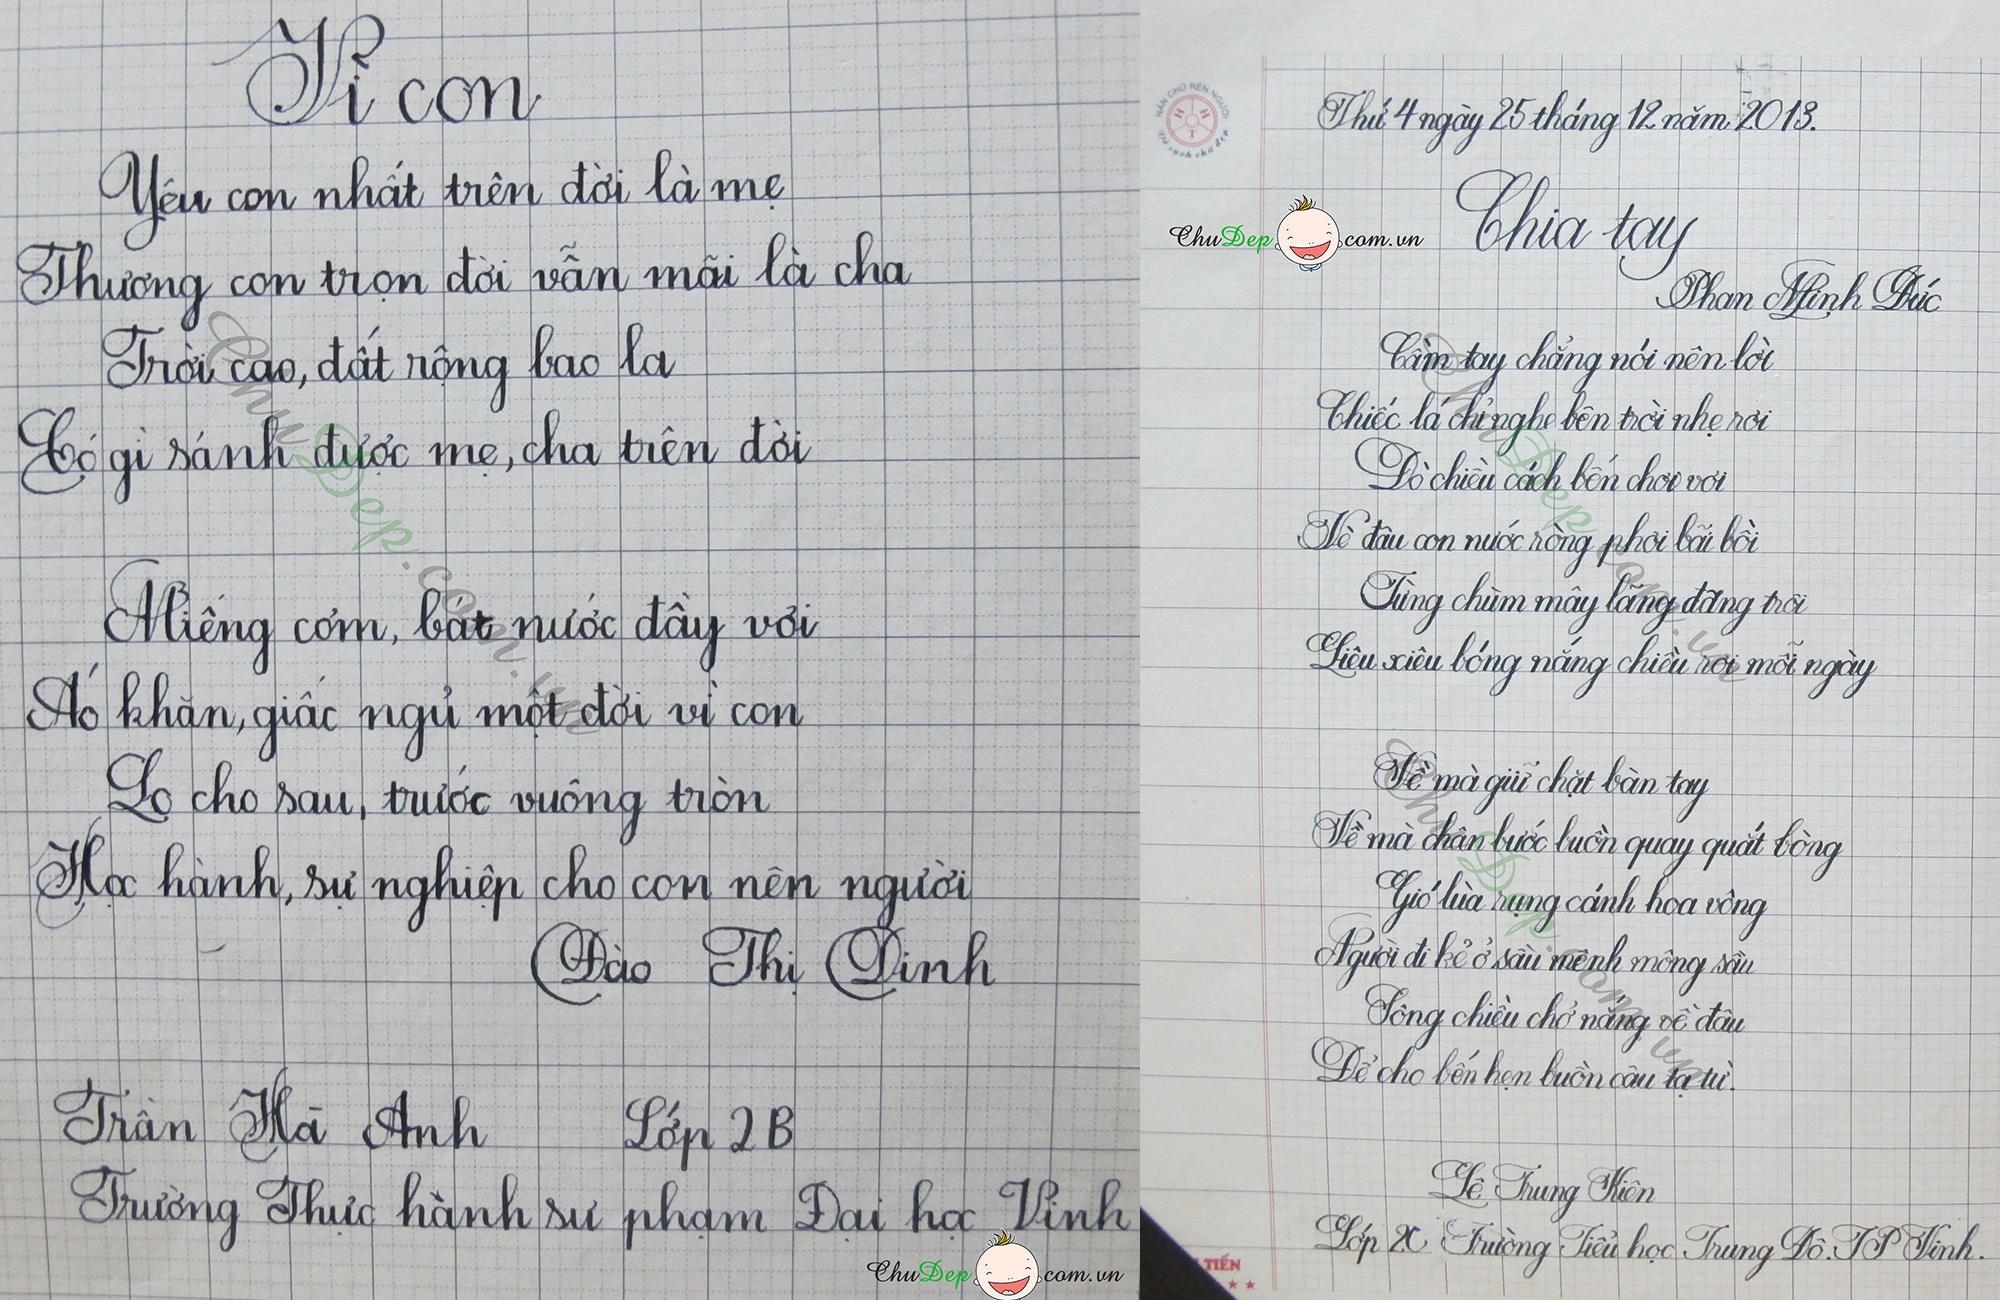 Vì con
Yêu con nhất trên đời là mẹ
Thương con trọn đời vẫn mãi là cha
Trời cao, đất rộng bao la
Có gì sánh được mẹ, cha trên đời
Miếng cơm, bát nước đầy vơi
Áo khăn, giấc ngủ một đời vì con
Lo cho sau, trước vuông tròn
Học hành, sự nghiệp cho con nên người
Đào Thị Dinh
Trần Hà Anh Lớp 2B
Trường Thực hành sư phạm Đại học Vinh
ChuDep.com.vn
NẮN CHỮ RÈN NGƯỜI
Vở sạch chữ đẹp
Thứ 4 ngày 25 tháng 12 năm 2013.
ChuDep.com.vn
Chia tay
Phan Minh Đức
Cầm tay chẳng nói nên lời
Chiếc lá chỉ nghe bên trời nhẹ rơi
Đò chiều cách bến chơi vơi
Về đâu con nước ròng phơi bãi bồi
Từng chùm mây lãng đãng trôi
Liêu xiêu bóng nắng chiều rơi mỗi ngày
Về mà giữ chặt bàn tay
Về mà chân bước buồn quay quắt bòng
Gió lùa rụng cánh hoa vông
Người đi kẻ ở sầu mênh mông sầu
Sông chiều chở nắng về đâu
Để cho bến hẹn buồn câu tạ từ.
Lê Trung Kiên
Lớp 2C Trường Tiểu học Trung Đô. TP Vinh.
TIẾN
ChuDep.com.vn
ChuDep.com.vn
ChuDep.com.vn